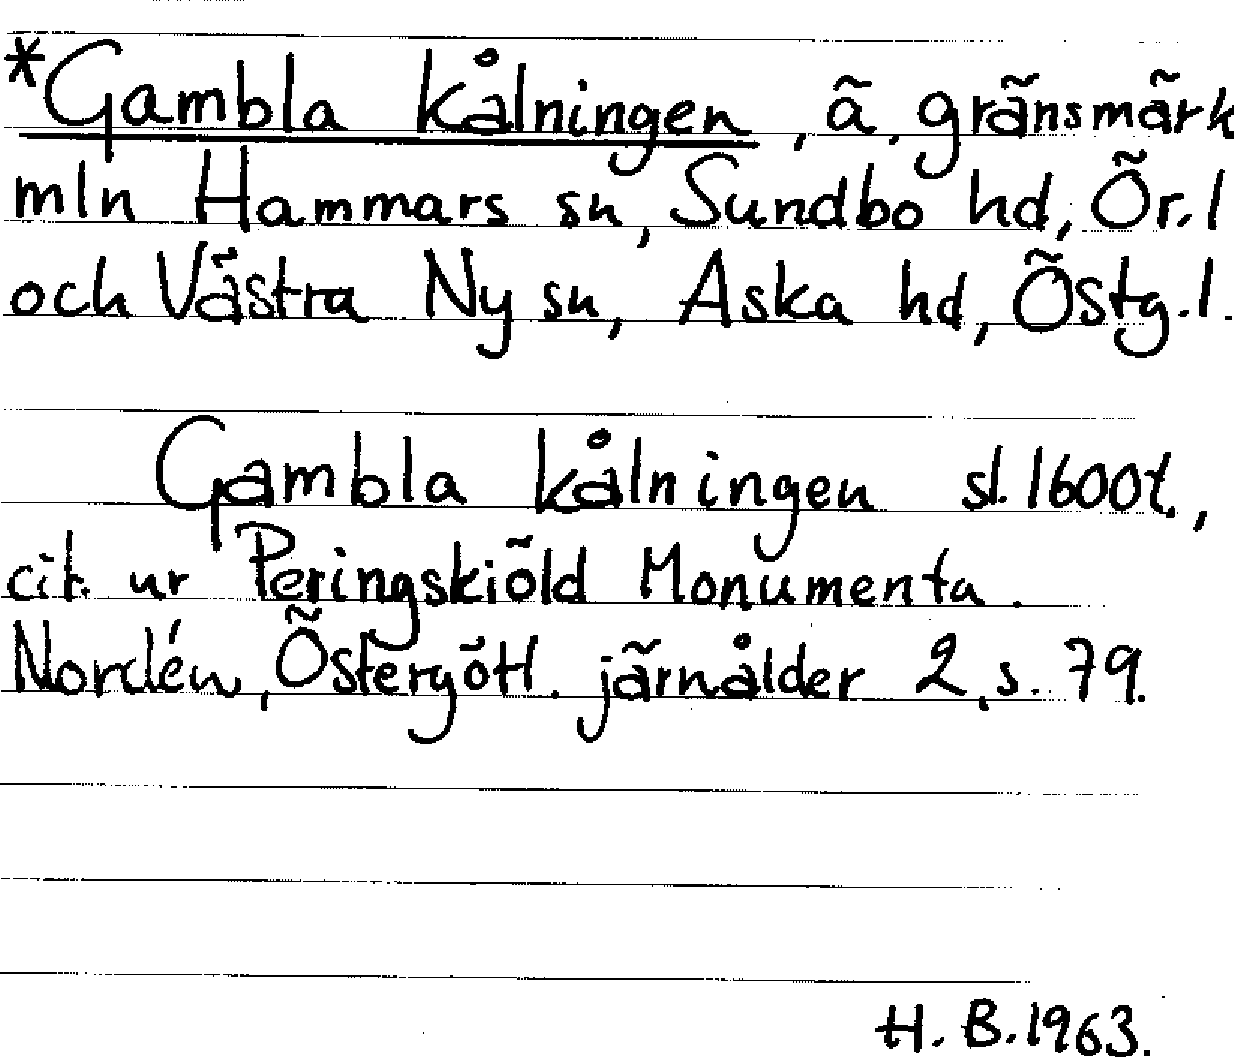 *Gambla kålningen, ä. gränsmärk
mln Hammars sn, Sundbo hd, Ör. l
och Västra Ny sn, Aska hd, Östg. l.
Gambla kålningen sl. 1600t.,
cit. ur Peringskiöld Monumenta.
Nordén, Östergötl. järnålder 2, s. 79.
H. B. 1963.